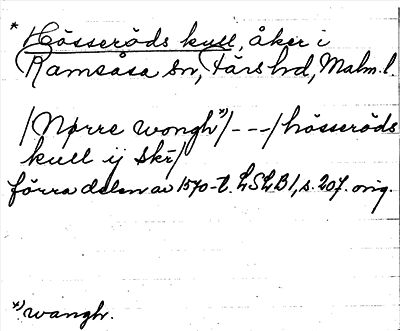 * Hösseröds kull, åker i
Ramsåsa sn, Färs hd, Malm. l.
/Nørre wongh*)/---/hösseröds
kull ij skr̄/
förra delen av 1570-t. LSLB1, s. 207. orig.
*) wangh.